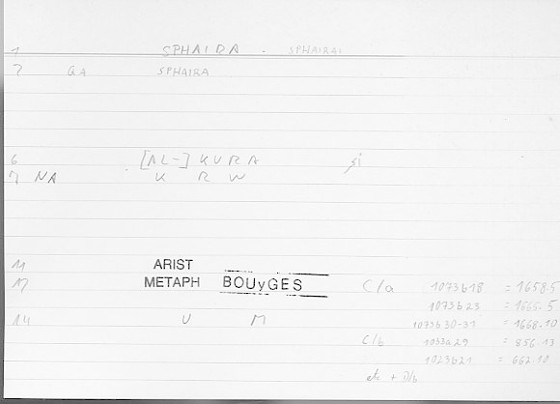 1 SPHAIRA - SPHAIRAI
2 GA SPHAIRA
6 [AL-] KURA si
7 NA K R W
11 ARIST
12 METAPH BOUyGES C/a 1073b18 = 1658.5
1073b23 = 1665.5
14 U M 1073b30-31 = 1668.10
C/b 1033a29 = 856.13
1023b21 = 662.10
etc + D/b